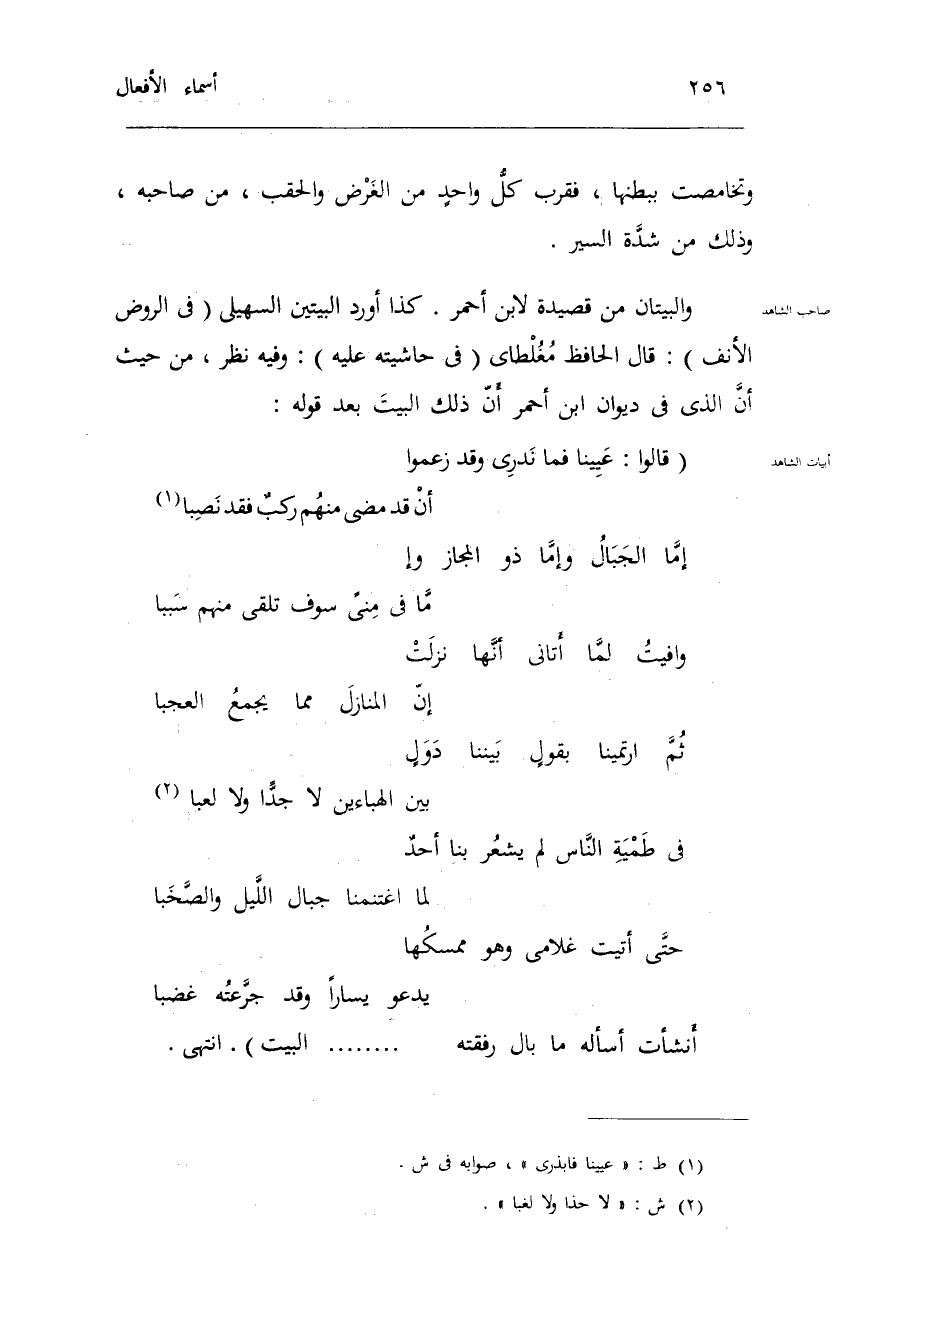 ٢٥٦ أسماء الأفعال
وتخامصت ببطنها ، فقرب كلُّ واحدٍ من الغَرْض والحقب ، من صاحبه ،
وذلك من شدَّة السير .
صاحب الشاهد والبيتان من قصيدة لابن أحمر . كذا أورد البيتين السهيلى ( فى الروض
الأنف ) : قال الحافظ مُغُلْطاى ( فى حاشيته عليه ) : وفيه نظر ، من حيث
أنَّ الذى فى ديوان ابن أحمر أنّ ذلك البيتَ بعد قوله :
أبيات الشاهد ( قالوا : عَيِينا فما نَدرِى وقد زعموا
أنْ قد مضى منهُم ركبٌ فقد نَصِبا (١)
إمَّا الحَبَالُ وإمَّا ذو المجاز وإ
مَّا فى مِنىً سوف تلقى منهم سَببا
وافيتُ لمَّا أتانى أنَّها نزلَتْ
إنّ المنازلَ مما يجمعُ العجبا
ثُمَّ ارتمينا بقولٍ بَيننا دَوَلٍ
بين الهباءين لا جدًّا ولا لعبا (٢)
فى طَمْيَةِ النَّاس لم يشعُر بنا أحدٌ
لما اغتنمنا جبال اللَّيل والصَّخَبا
حتَّى أتيت غلامى وهو ممسكُها
يدعو يساراً وقد جرَّعتُه غضبا
أنشأت أسأله ما بال رفقته ........ البيت ) . انتهى .
(١) ط : « عيينا فابذرى » ، صوابه فى ش .
(٢) ش : « لا حذا ولا لغبا » .